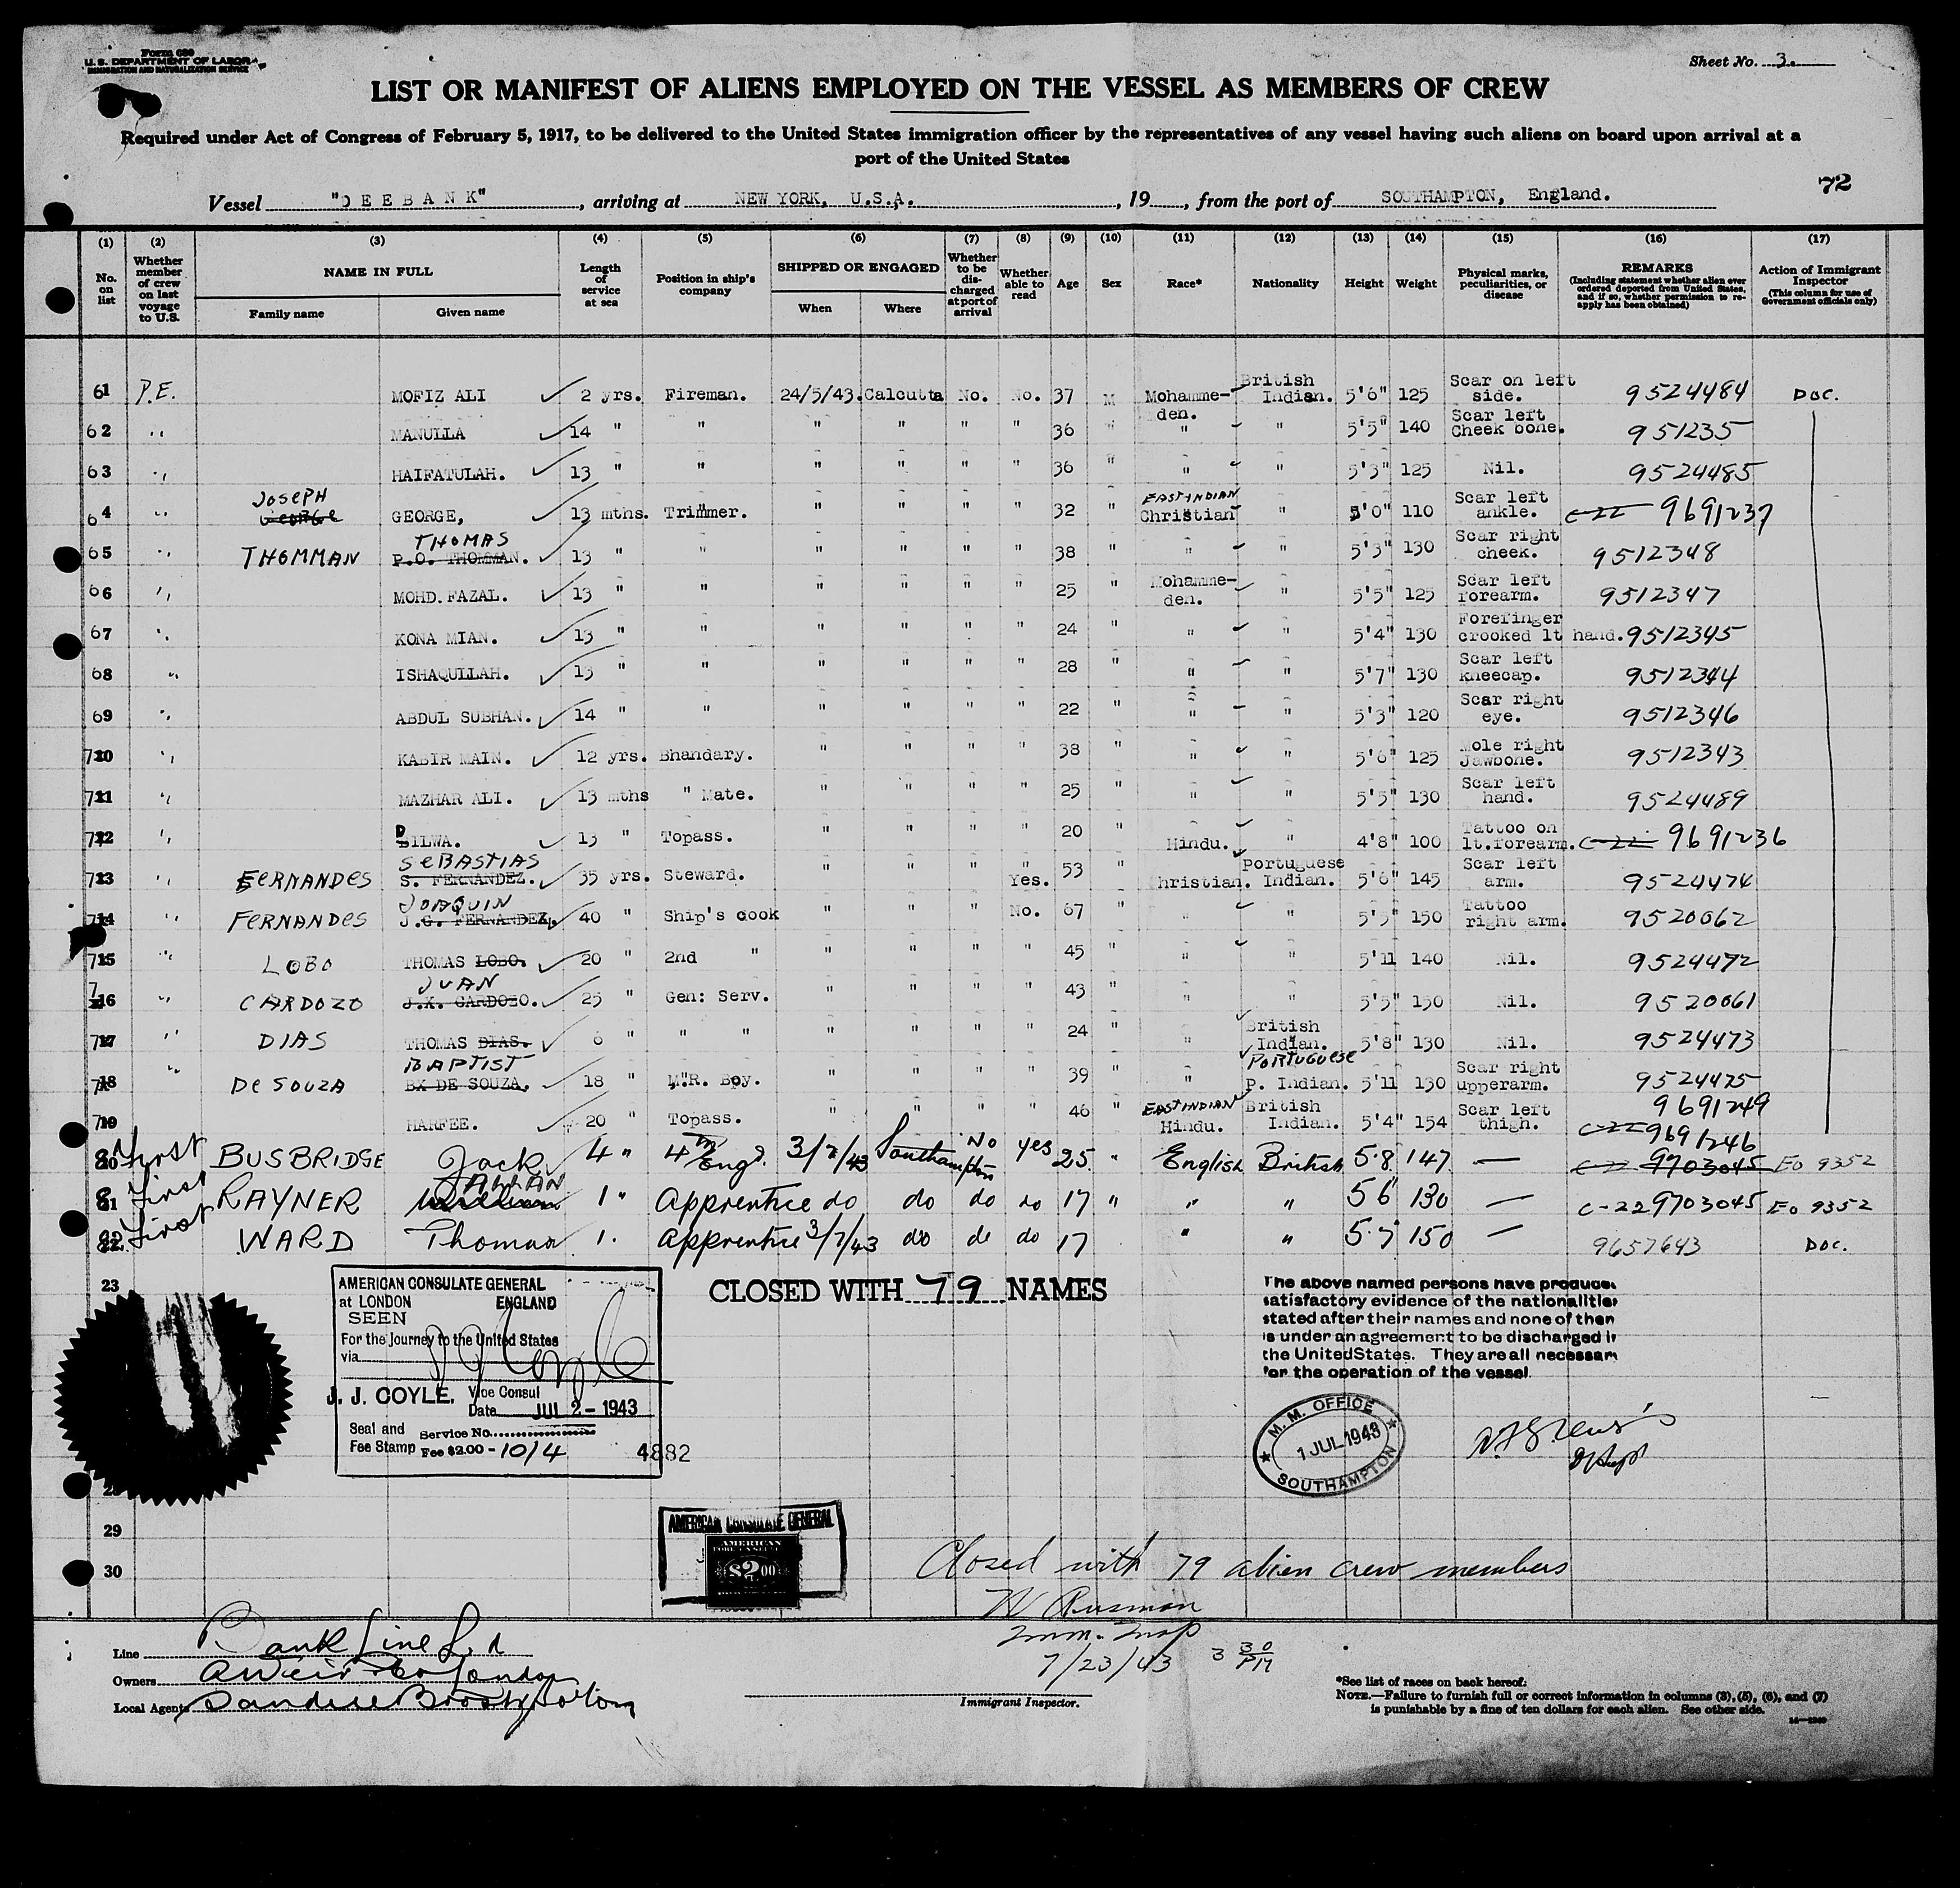 Form 680
U. S. DEPARTMENT OF LABOR
IMMIGRATION AND NATURALIZATION SERVICE
Sheet No. 3.
LIST OR MANIFEST OF ALIENS EMPLOYED ON THE VESSEL AS MEMBERS OF CREW
Required under Act of Congress of February 5, 1917, to be delivered to the United States immigration officer by the representatives of any vessel having such aliens on board upon arrival at a
port of the United States
72
Vessel "DEEBANK", arriving at NEW YORK, U.S.A., 19, from the port of SOUTHAMPTON, England.
(1) (2) (3) (4) (5) (6) (7) (8) (9) (10) (11) (12) (13) (14) (15) (16) (17)
No. on list
Whether member of crew on last voyage to U.S.
NAME IN FULL
Family name Given name
Length of service at sea
Position in ship's company
SHIPPED OR ENGAGED
When Where
Whether to be discharged at port of arrival
Whether able to read
Age
Sex
Race*
Nationality
Height
Weight
Physical marks, peculiarities, or disease
REMARKS
(Including statement whether alien ever ordered deported from United States, and if so, whether permission to re-apply has been obtained)
Action of Immigrant Inspector
(This column for use of Government officials only)
61 P.E. MOFIZ ALI 2 yrs. Fireman. 24/5/43. Calcutta No. No. 37 M Mohamme-den. British Indian. 5'6" 125 Scar on left side. 9524484 DOC.
62 " MANULLA 14 " " " " " " 36 " " " 5'5" 140 Scar left Cheek bone. 951235
63 " HAIFATULAH. 13 " " " " " " 36 " " " 5'3" 125 Nil. 9524485
64 " JOSEPH George GEORGE, 13 mths. Trimmer. " " " " 32 " EAST INDIAN Christian " 5'0" 110 Scar left ankle. C-22 9691237
65 " THOMMAN THOMAS P.O. THOMMAN. 13 " " " " " " 38 " " " 5'3" 130 Scar right cheek. 9512348
66 " MOHD. FAZAL. 13 " " " " " " 25 " Mohamme-den. " 5'5" 125 Scar left forearm. 9512347
67 " KONA MIAN. 13 " " " " " " 24 " " " 5'4" 130 Forefinger crooked lt hand. 9512345
68 " ISHAQULLAH. 13 " " " " " " 28 " " " 5'7" 130 Scar left kneecap. 9512344
69 " ABDUL SUBHAN. 14 " " " " " " 22 " " " 5'3" 120 Scar right eye. 9512346
70 " KABIR MAIN. 12 yrs. Bhandary. " " " " 38 " " " 5'6" 125 Mole right Jawbone. 9512343
71 " MAZHAR ALI. 13 mths " Mate. " " " " 25 " " " 5'5" 130 Scar left hand. 9524489
72 " DILWA. 13 " Topass. " " " " 20 " Hindu. " 4'8" 100 Tattoo on lt.forearm. C-22 9691236
73 " FERNANDES SEBASTIAS S. FERNANDEZ. 35 yrs. Steward. " " " Yes. 53 " Christian. Portuguese Indian. 5'6" 145 Scar left arm. 9524474
74 " FERNANDES JOAQUIN J.G. FERNANDEZ, 40 " Ship's cook " " " No. 67 " " " 5'5" 150 Tattoo right arm. 9520062
75 " LOBO THOMAS LOBO. 20 " 2nd " " " " " 45 " " " 5'11 140 Nil. 9524472
76 " CARDOZO JUAN J.X. CARDOZO. 25 " Gen: Serv. " " " " 43 " " " 5'5" 150 Nil. 9520061
77 " DIAS THOMAS DIAS. 6 " " " " " " " 24 " " British Indian. 5'8" 130 Nil. 9524473
78 " DE SOUZA BAPTIST BX DE SOUZA. 18 " M.R. Boy. " " " " 39 " " PORTUGUESE P. Indian. 5'11 130 Scar right upperarm. 9524475
79 HARFEE. 20 " Topass. " " " " 46 " EAST INDIAN Hindu. British Indian. 5'4" 154 Scar left thigh. C-22 9691249
80 First BUSBRIDGE Jack 4 " 4th Engr. 3/7/43 Southampton No yes 25 " English British 5.8 147 — 9691246 C-22 9703045 EO 9352
81 First RAYNER ALLAN William 1 " Apprentice do do do do 17 " " " 5 6 130 — C-22 9703045 EO 9352
82 First WARD Thomas 1. Apprentice 3/7/43 do do do 17 " " 5.7 150 — 9657643 DOC.
23
AMERICAN CONSULATE GENERAL
at LONDON ENGLAND
SEEN
For the Journey to the United States
via
J. J. COYLE. Vice Consul
Date JUL 2 - 1943
Seal and Fee Stamp
Service No.
Fee $2.00 - 10/4
4882
CLOSED WITH 79 NAMES
The above named persons have produced
satisfactory evidence of the nationalities
stated after their names and none of them
is under an agreement to be discharged in
the United States. They are all necessary
for the operation of the vessel.
M. M. OFFICE
1 JUL 1943
SOUTHAMPTON
29
AMERICAN CONSULATE GENERAL
AMERICAN
$2.00
30
Closed with 79 alien crew members
Imm. Insp
7/23/43 3 30 PM
Line Bank Line Ld
Owners A Weir & Co London
Local Agents
Immigrant Inspector.
*See list of races on back hereof.
NOTE.—Failure to furnish full or correct information in columns (3), (5), (6), and (7)
is punishable by a fine of ten dollars for each alien. See other side.